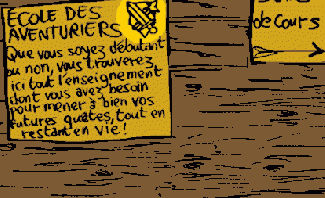 ÉCOLE DES
AVENTURIERS
Que vous soyez débutant
ou non, vous trouverez
ici tout l'enseignement
dont vous avez besoin
pour mener à bien vos
futures quêtes, tout en
restant en vie !
de Cours